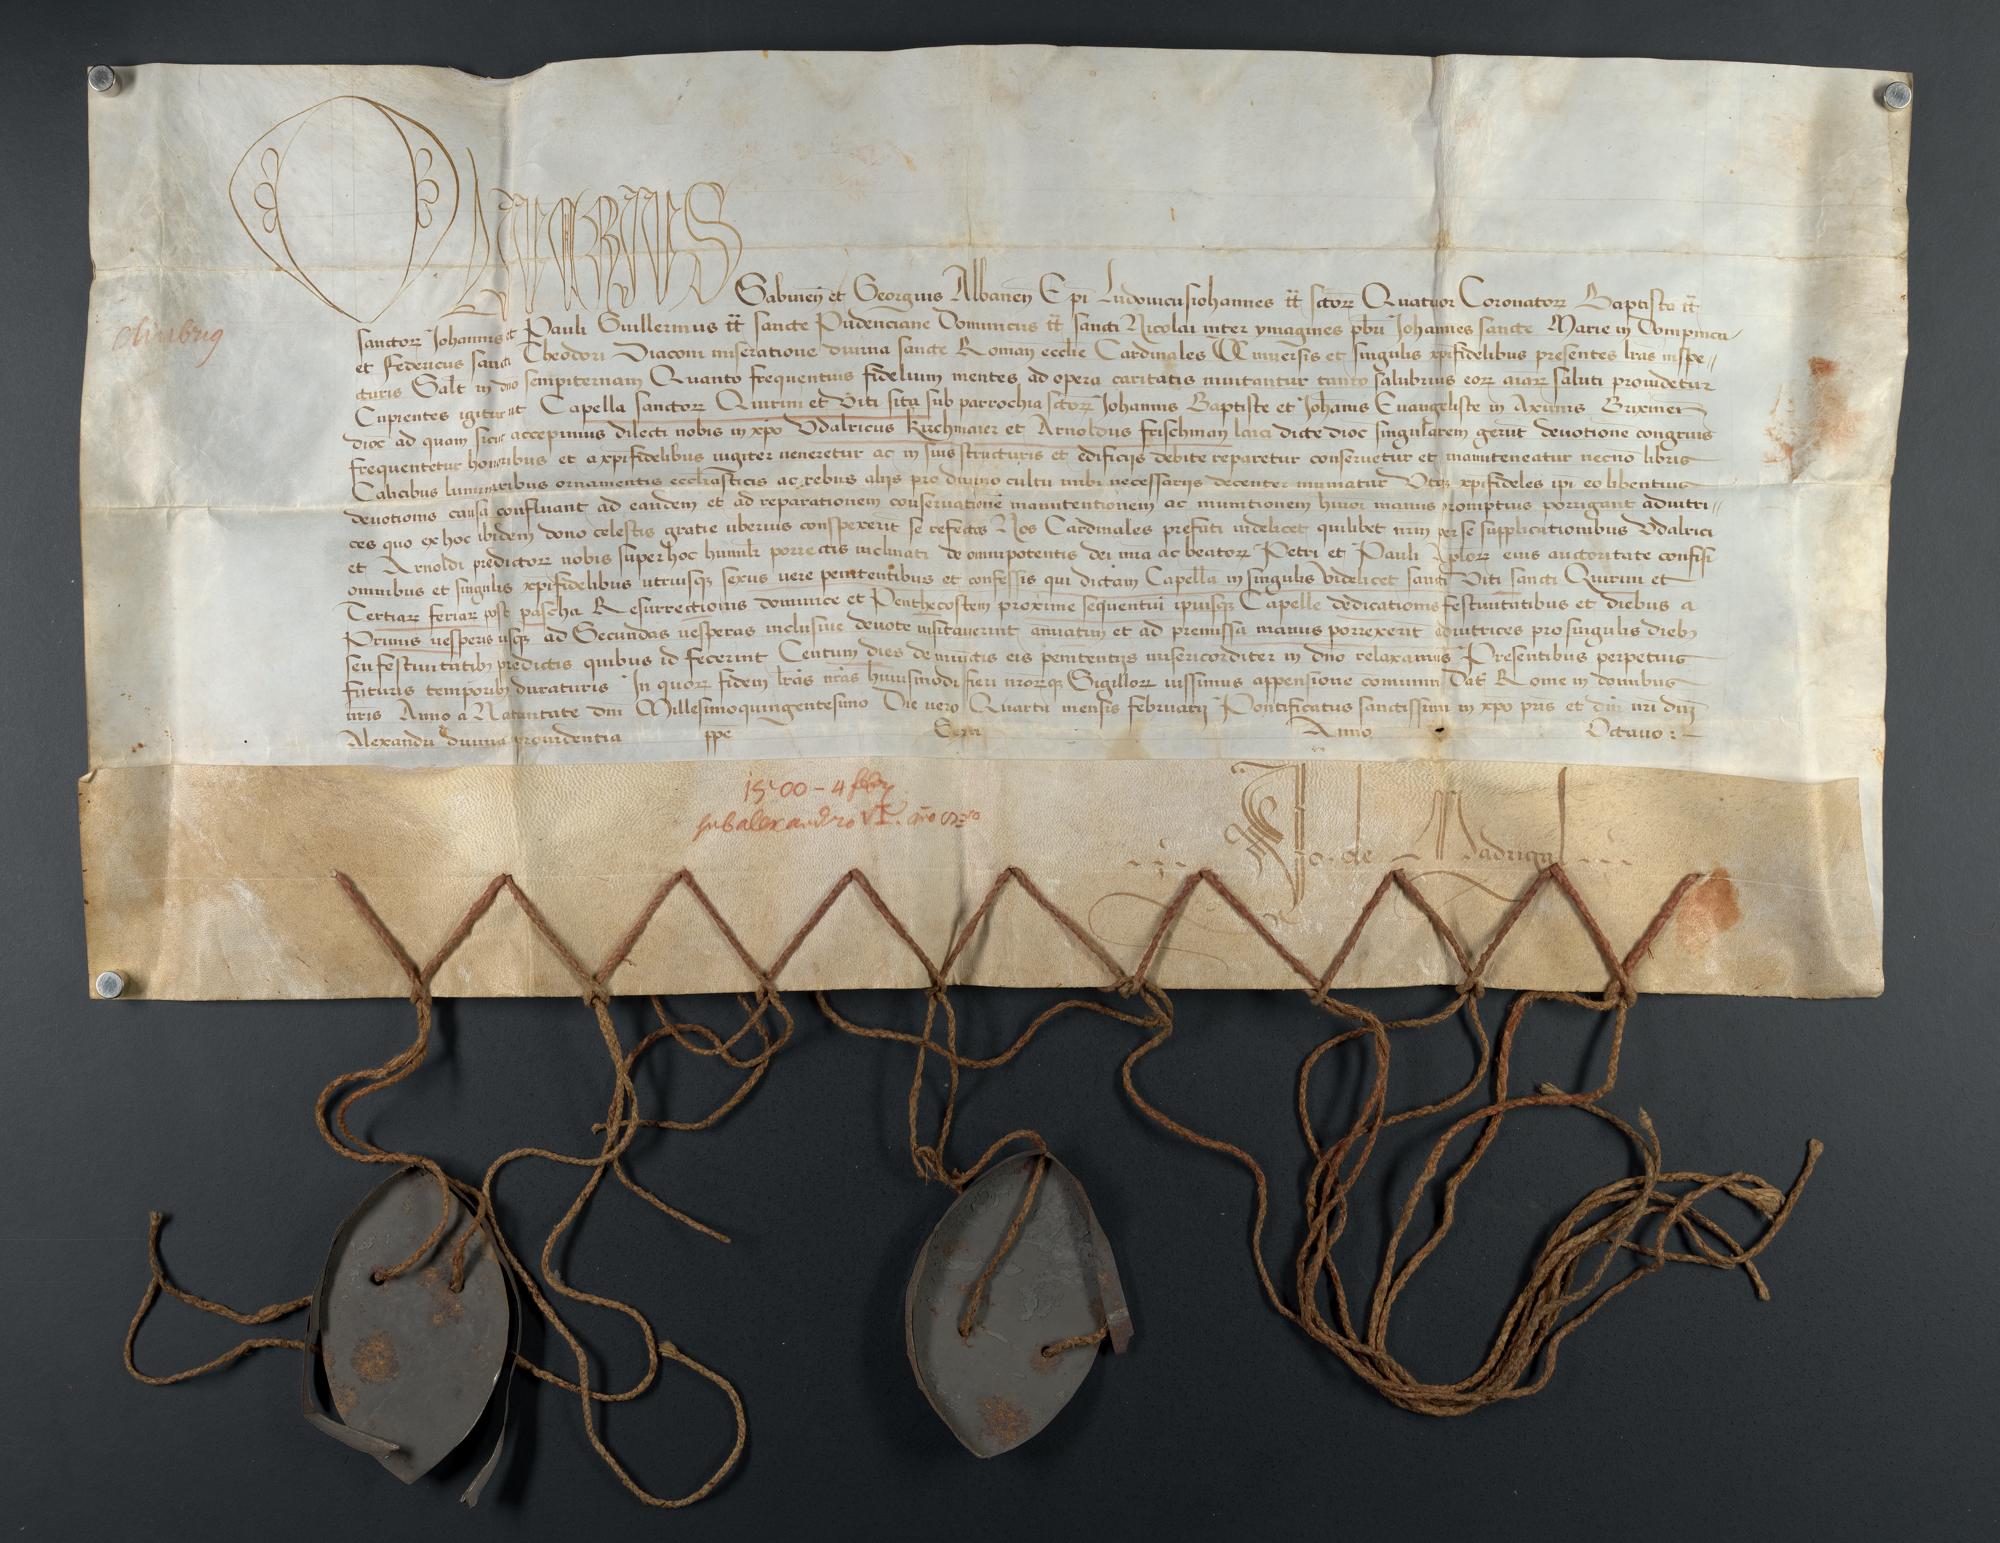 OLIVERIUS
Sabineñ et Georgius Albaneñ Epi Ludovicusiohannes tt sctorꝝ Quatuor Coronatorꝝ Baptista tt
sanctorꝝ Johannis et Pauli Guillermus tt sancte Pudenciane Dominicus tt sancti Nicolai inter ymagines pbri Johannes sancte Marie in Dompnica
et Federicus sancti Theodori Diaconi miseratione divina sancte Romañ ecclie Cardinales Universis et singulis xpifidelibus presentes lras inspe//
cturis Salt in dno sempiternam Quanto frequentius fidelium mentes ad opera caritatis invitantur tanto salubrius eorꝝ aiarꝝ saluti providetur
Cupientes igitur ut Capella sanctorꝝ Quirini et Viti sita sub parrochia sctorꝝ Johannis Baptiste et Johanis Evangeliste in Axumis Brixineñ
dioc ad quam sicut accepimus dilecti nobis in xpo Udalricus Kirchmaier et Arnoldus Frischman laici dicte dioc singularem gerut devotione congruis
frequentetur honoribus et a xpifidelibus iugiter veneretur ac in suis structuris et edificijs debite reparetur conservetur et manuteneatur necno libris
Calicibus luminaribus ornamentis ecclesiasticis ac rebus alijs pro divino cultu inibi necessarijs decenter muniatur Utqꝫ xpifideles ipi eo libentius
devotionis causa confluant ad eandem et ad reparationem conservatione manutentionem ac munitionem huioi manus promptius porrigant adiutri//
ces quo ex hoc ibidem dono celestis gratie uberius conspexerit se refectos Nos Cardinales prefati videlicet quilibet nrm per se supplicationibus Udalrici
et Arnoldi predictorꝝ nobis super hoc humilr porrectis inclinati de omnipotentis dei mia ac beatorꝝ Petri et Pauli Aplorꝝ eius auctoritate confisi
omnibus et singulis xpifidelibus utriusqꝫ sexus vere penitentibus et confessis qui dictam Capella in singulis videlicet sancti Viti sancti Quirini et
Tertiarꝝ feriarꝝ post pascha Resurrectionis dominice et Penthecostem proxime sequentiu ipiusqꝫ Capelle dedicationis festivitatibus et diebus a
Primis vesperis usqꝫ ad Secundas vesperas inclusive devote visitaverint annuatim et ad premissa manus porrexerit adiutrices pro singulis dieb
seu festivitatib predictis quibus id fecerint Centum dies de iniunctis eis penitentijs misericorditer in dno relaxamus Presentibus perpetuis
futuris temporib duraturis In quorꝝ fidem lras nras huiusmodi fieri nrorꝝqꝫ Sigillorꝝ iussimus appensione comuniri Dat Rome in domibus
nris Anno a Nativitate dni Millesimoquingentesimo Die vero Quarta mensis februarij Pontificatus sanctissimi in xpo pris et dni nri dni
Alexandri divina providentia ppe Sexti Anno Octavo :
1500 - 4 febr
sub alexandro VI. año
Jo. de Madrigal